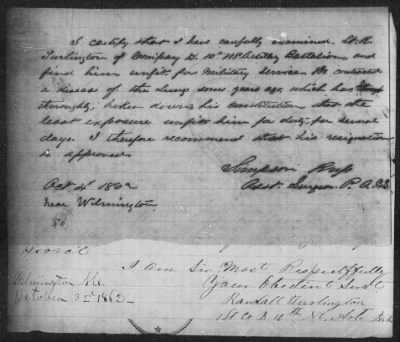 I certify that I have carefully examined Lt. R.
Turlington of Company D. 10th NC Artillery Battalion and
find him unfit for Military service. He contracted
a disease of the Lungs some years ago which has
thoroughly broken down his constitution that the
least exposure unfits him for duty for several
days. I therefore recommend that his resignation
is approved
Simpson Russ
Asst. Surgeon P. A. C. S.
Oct 4th 1862
near Wilmington
I am Sir Most Respectfully
Your Obedient Servt
Wilmington N.C.
October 3rd 1862
Randall Turlington
1st Co. D. 10th N.C. Arty